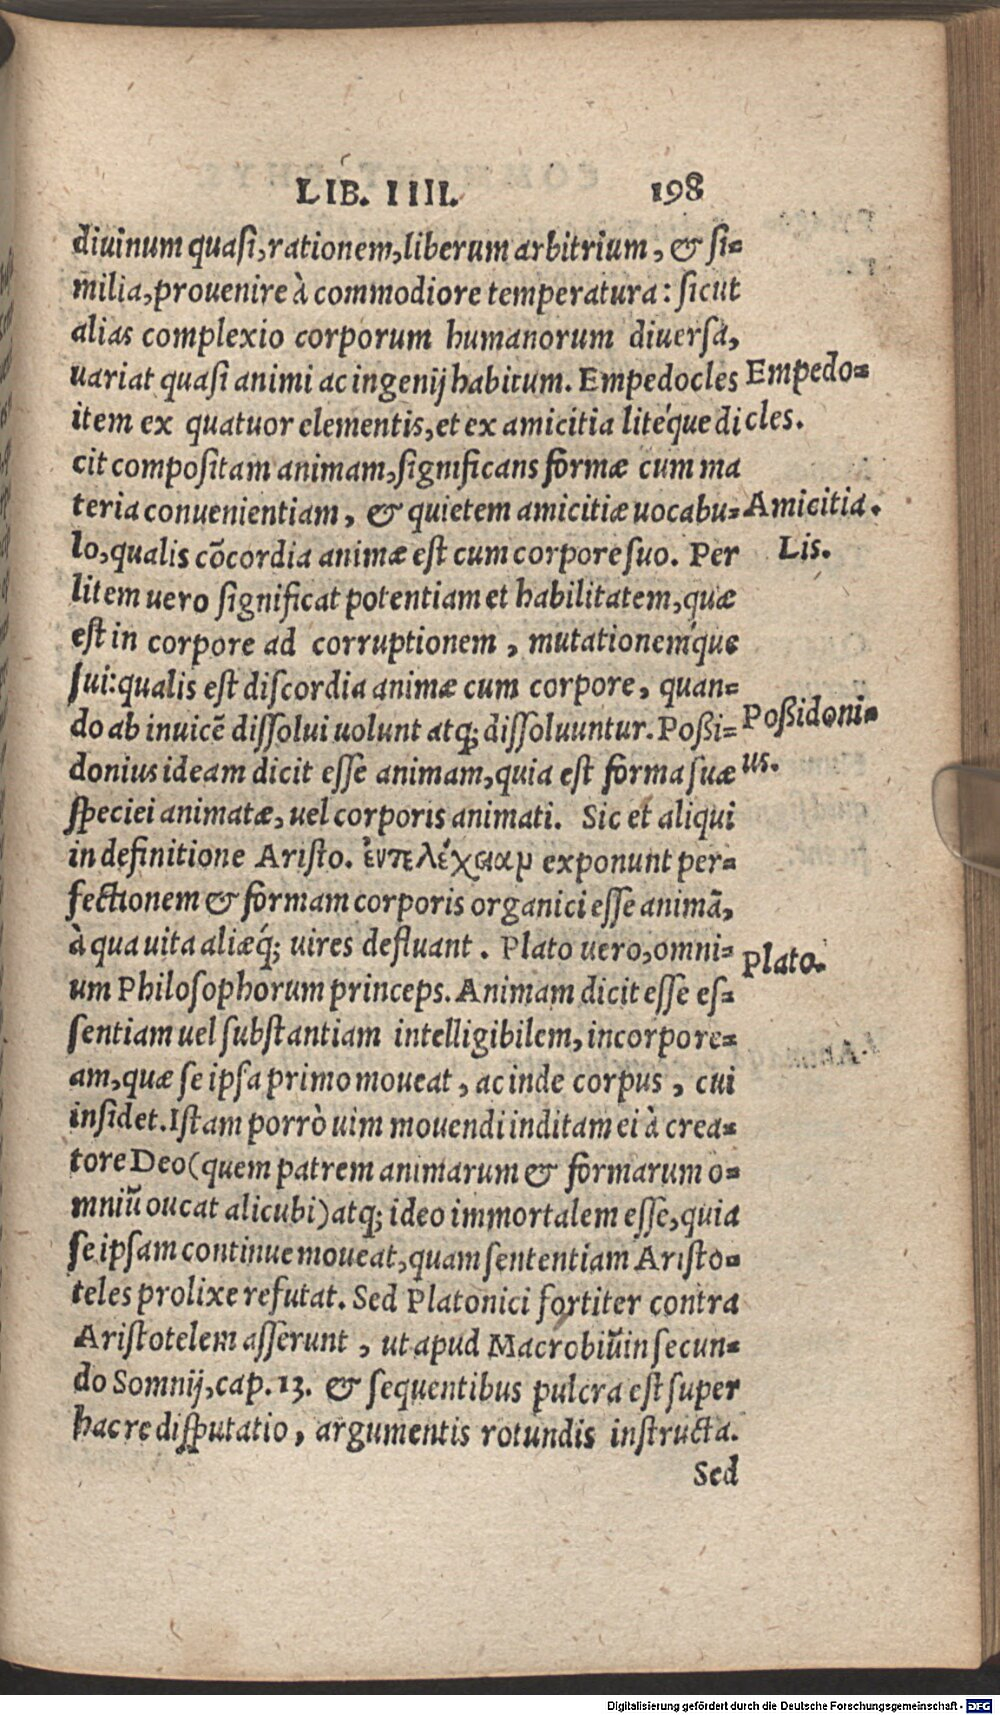 LIB. IIII. 198
diuinum quasi, rationem, liberum arbitrium, & si-
milia, prouenire à commodiore temperatura: sicut
alias complexio corporum humanorum diuersa,
uariat quasi animi ac ingenij habitum. Empedocles
Empedo-
item ex quatuor elementis, et ex amicitia litéque di
cles.
cit compositam animam, significans formæ cum ma
teria conuenientiam, & quietem amicitiæ uocabu-
Amicitia.
lo, qualis cõcordia animæ est cum corpore suo. Per
Lis.
litem uero significat potentiam et habilitatem, quæ
est in corpore ad corruptionem, mutationemq́ue
sui: qualis est discordia animæ cum corpore, quan-
do ab inuicẽ dissolui uolunt atq; dissoluuntur. Poßi-
Poßidoni-
donius ideam dicit esse animam, quia est forma suæ
us.
speciei animatæ, uel corporis animati. Sic et aliqui
in definitione Aristo. ἐντελέχειαμ exponunt per-
fectionem & formam corporis organici esse animã,
à qua uita aliæq́; uires defluant. Plato uero, omni-
Plato.
um Philosophorum princeps. Animam dicit esse es-
sentiam uel substantiam intelligibilem, incorpore-
am, quæ se ipsa primo moueat, ac inde corpus, cui
insidet. Istam porrò uim mouendi inditam ei à crea-
tore Deo (quem patrem animarum & formarum o-
mniũ oucat alicubi) atq; ideo immortalem esse, quia
se ipsam continue moueat, quam sententiam Aristo-
teles prolixe refutat. Sed Platonici fortiter contra
Aristotelem asserunt, ut apud Macrobiũ in secun-
do Somnij, cap. 13. & sequentibus pulcra est super
hac re disputatio, argumentis rotundis instructa.
Sed
Digitalisierung gefördert durch die Deutsche Forschungsgemeinschaft - DFG